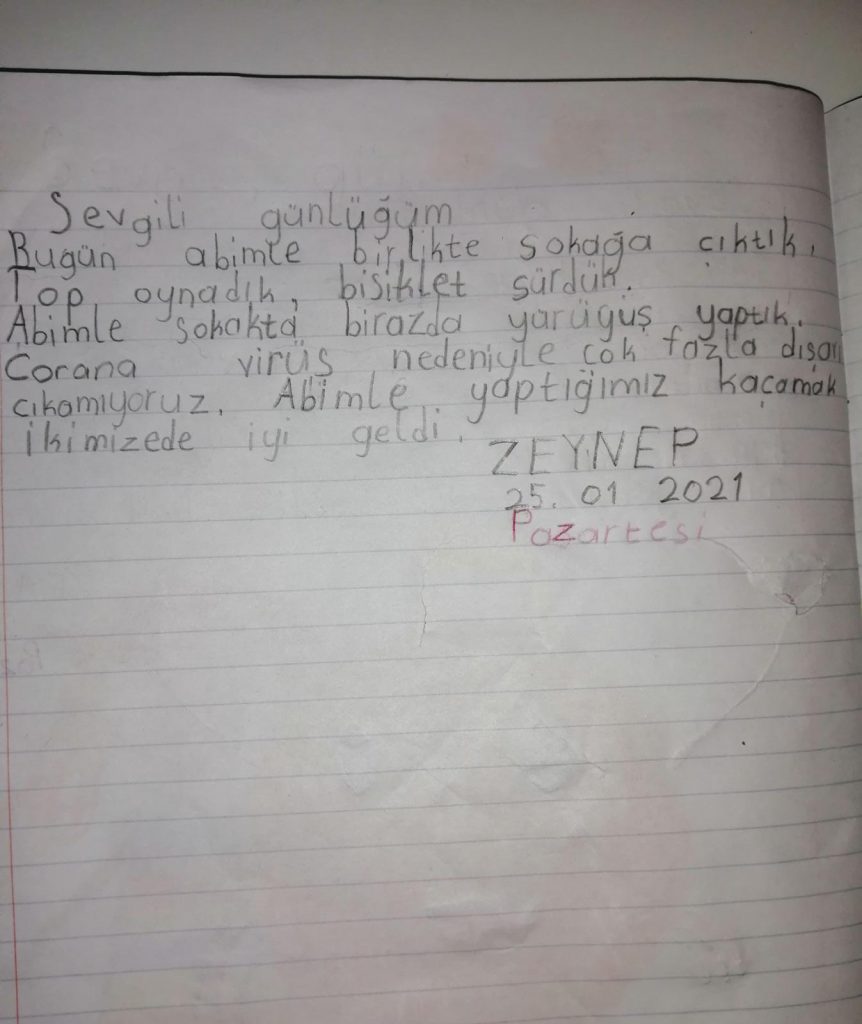 Sevgili günlüğüm
Bugün abimle birlikte sokağa çıktık.
Top oynadık, bisiklet sürdük.
Abimle sokakta birazda yürüğüş yaptık.
Corana virüs nedeniyle çok fazla dışarı
çıkamıyoruz. Abimle yaptığımız kaçamak
ikimizede iyi geldi.
ZEYNEP
25. 01 2021
Pazartesi